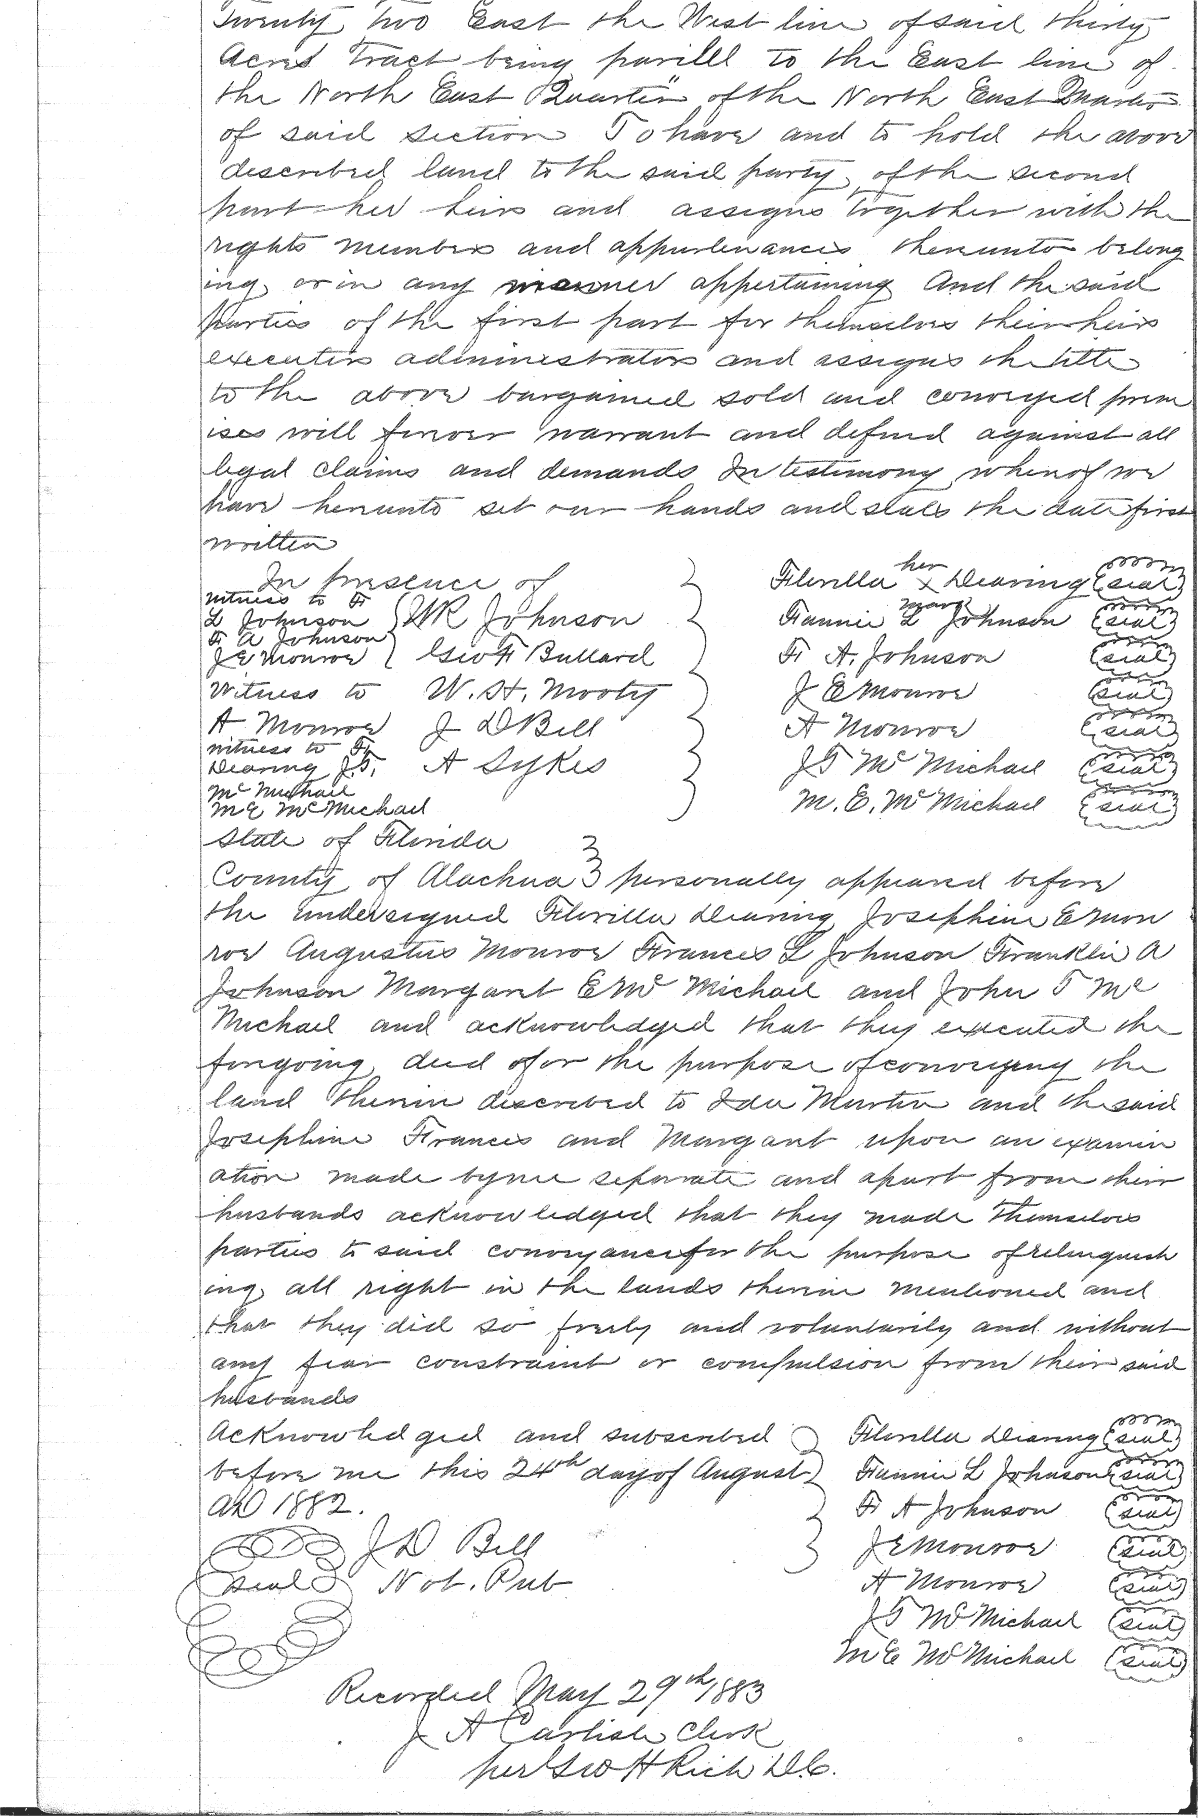 Twenty two East the West line of said thirty
Acres Tract being parilll to the East line of
the North East Quarter of the North East Quarter
of said section To have and to hold the above
described land to the said party of the second
part her heirs and assigns together with the
rights members and appurtenances thereunto belong
ing or in any manner appertaining And the said
parties of the first part for themselves their heirs
executors administrators and assigns the title
to the above bargained sold and conveyed prem
ises will forever warrant and defend against all
legal claims and demands In testimony whereof we
have hereunto set our hands and seals the date first
written
In presence of } Florilla her x mark Dearing (seal)
witness to F
L Johnson { W R Johnson Fannie L Johnson (seal)
F A Johnson
J E Monroe { Geo F Bullard F A. Johnson (seal)
Witness to W. H. Mooty J E Monroe (seal)
A Monroe J D Bell A Monroe (seal)
witness to F
Dearing J.T. A Sykes J T McMichael (seal)
McMichael
M E McMichael M. E. McMichael (seal)
State of Florida
County of Alachua } personally appeared before
the undersigned Florilla Dearing Josephine E Mon
roe Augustus Monroe Frances L Johnson Franklin A
Johnson Margaret E McMichael and John T Mc
Michael and acknowledged that they executed the
foregoing deed ofor the purpose of conveying the
land therein described to Ida Martin and the said
Josephine Frances and Margaret upon an examin
ation made by me seperate and apart from their
husbands acknowledged that they made themselves
parties to said conveyance for the purpose of relinquish
ing all right in the lands therein mentioned and
that they did so freely and voluntarily and without
any fear constraint or compulsion from their said
husbands
Acknowledged and subscribed } Florilla Dearing (seal)
before me this 24th day of August } Fannie L Johnson (seal)
AD 1882. F A Johnson (seal)
J D Bell J E Monroe (seal)
seal Not. Pub A Monroe (seal)
J T McMichael (seal)
M E McMichael (seal)
Recorded May 29th 1883
J A Carlisle Clerk
per Geo H Rich D.C.